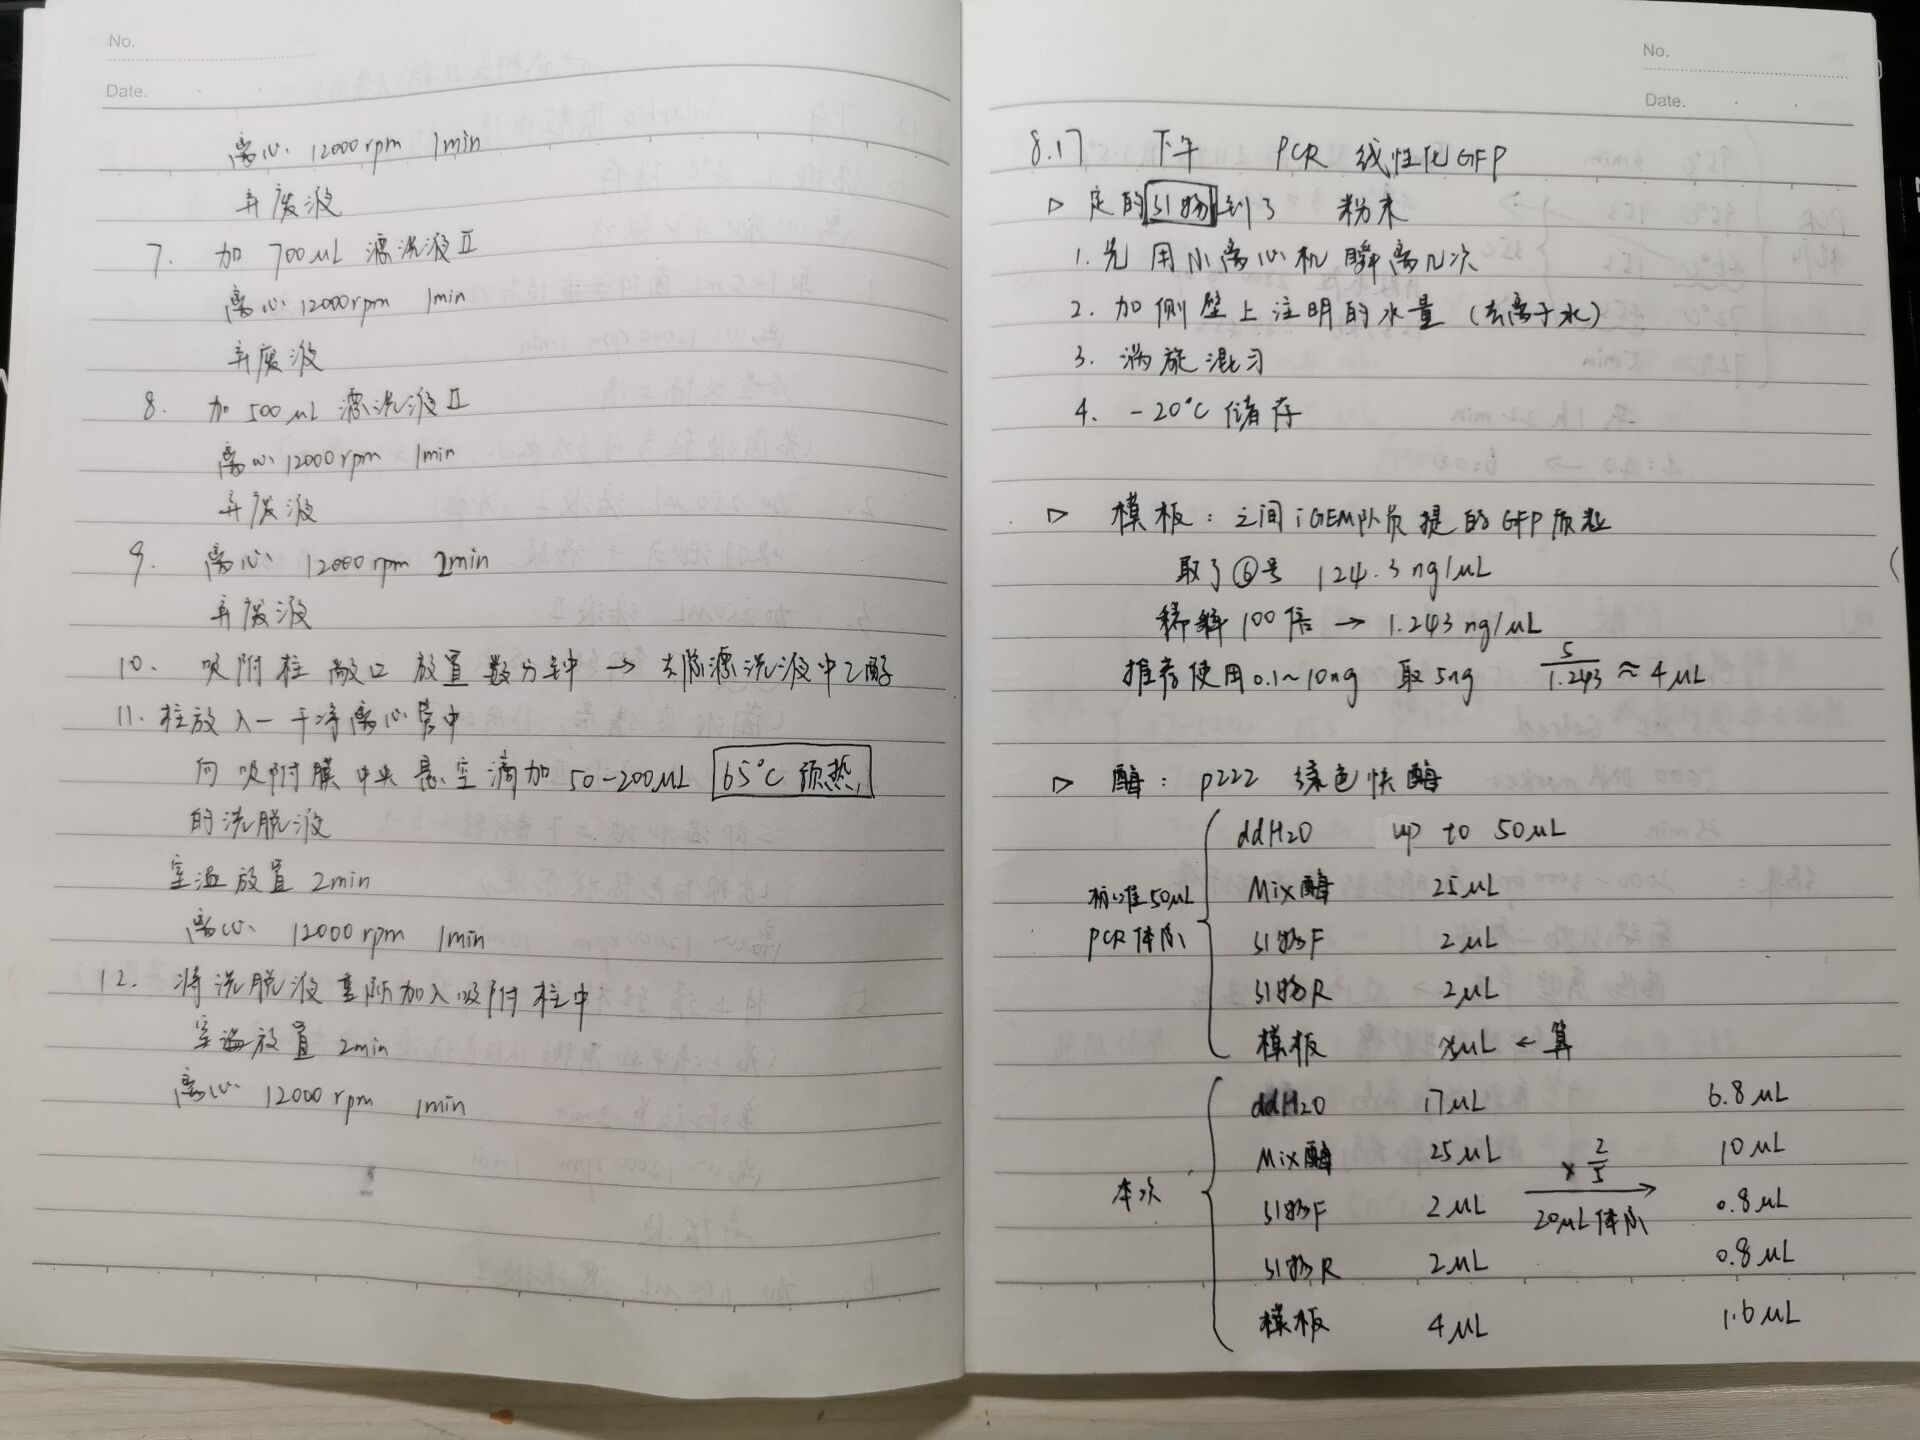 No.
Date.
离心 12000rpm 1min
弃废液
7. 加 700μL 漂洗液Ⅱ
离心 12000rpm 1min
弃废液
8. 加 500μL 漂洗液Ⅱ
离心 12000rpm 1min
弃废液
9. 离心 12000rpm 2min
弃废液
10. 吸附柱 敞口 放置 数分钟 → 去除漂洗液中乙醇
11. 柱放入一干净离心管中
向吸附膜中央悬空滴加 50-200μL 65°C 预热
的洗脱液
室温放置 2min
离心 12000rpm 1min
12. 将洗脱液重新加入吸附柱中
室温放置 2min
离心 12000rpm 1min
No.
Date.
8.17 下午 PCR 线性化GFP
▷ 定的引物到了 粉末
1. 先用小离心机瞬离几次
2. 加侧壁上注明的水量 (去离子水)
3. 涡旋混匀
4. -20°C 储存
▷ 模板: 之间iGEM队员提的GFP质粒
取了⑥号 124.3 ng/μL
稀释100倍 → 1.243 ng/μL
推荐使用0.1~10ng 取5ng 5/1.243 ≈ 4μL
▷ 酶: p222 绿色快酶
标准50μL PCR体系
ddH2O up to 50μL
Mix酶 25μL
引物F 2μL
引物R 2μL
模板 xμL ← 算
本次
ddH2O 17μL 6.8μL
Mix酶 25μL × 2/5 10μL
引物F 2μL 20μL体系 0.8μL
引物R 2μL 0.8μL
模板 4μL 1.6μL